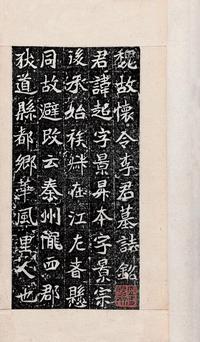 魏故懷令李君墓誌銘
君諱超字景昇本字景宗
後承始族在江左者懸
同故避改云秦州隴西郡
狄道縣都鄉華風里人也